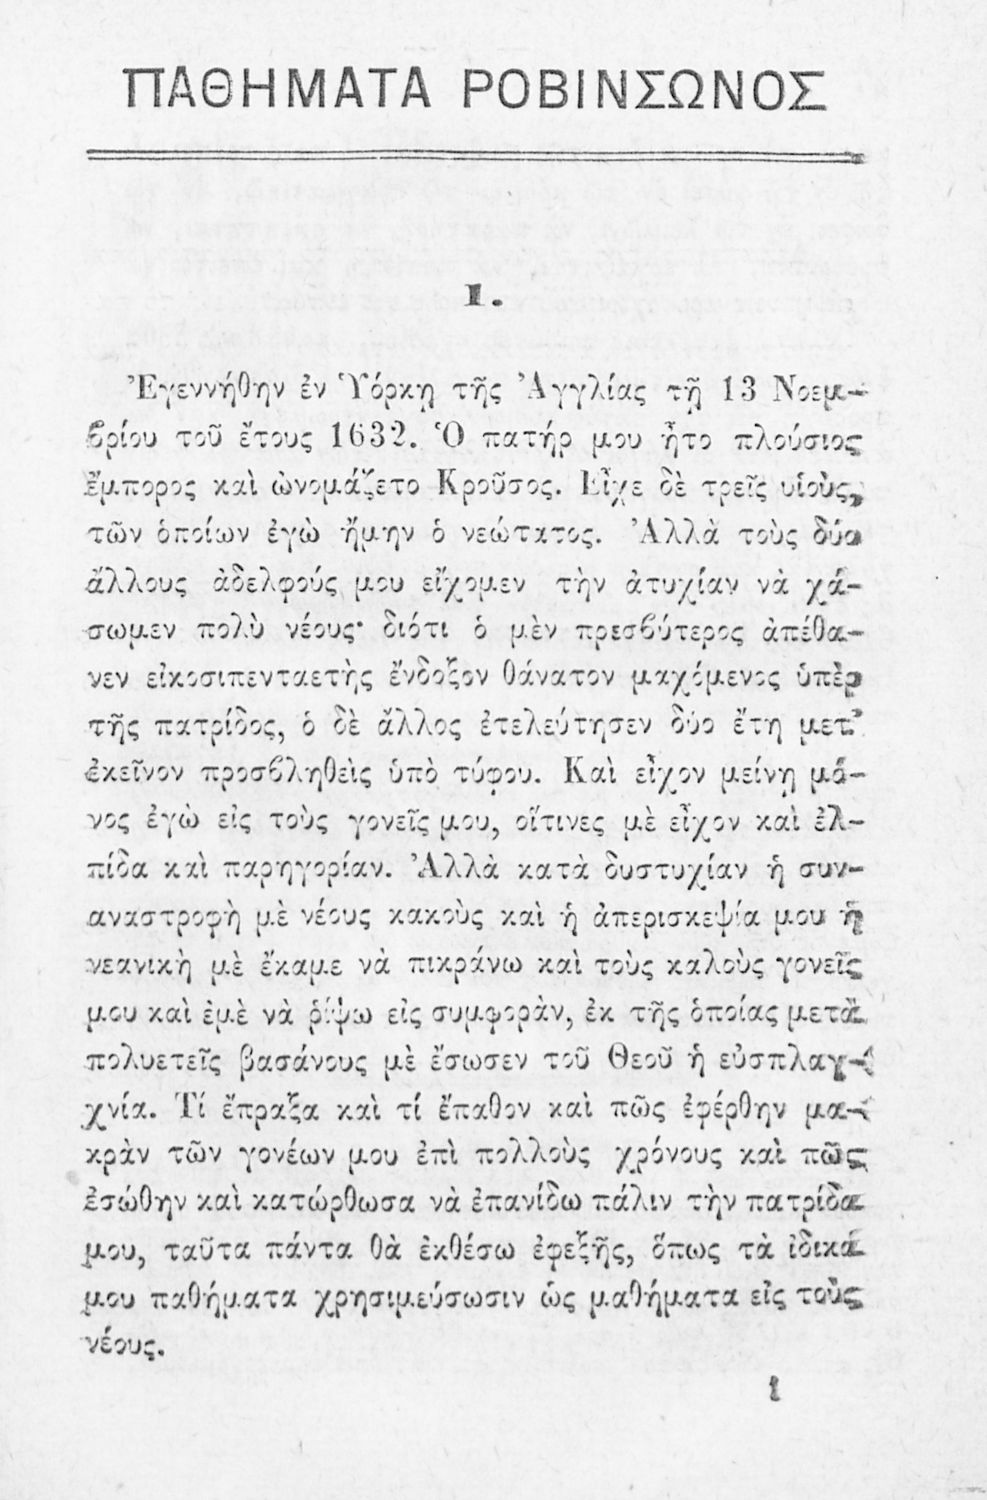 ΠΑΘΗΜΑΤΑ ΡΟΒΙΝΣΩΝΟΣ
1.
Ἐγεννήθην ἐν Ὑόρκῃ τῆς Ἀγγλίας τῇ 13 Νοεμ-
βρίου τοῦ ἔτους 1632. Ὁ πατήρ μου ἦτο πλούσιος
ἔμπορος καὶ ὠνομάζετο Κροῦσος. Εἶχε δὲ τρεῖς υἱοὺς,
τῶν ὁποίων ἐγὼ ἤμην ὁ νεώτατος. Ἀλλὰ τοὺς δύο
ἄλλους ἀδελφούς μου εἴχομεν τὴν ἀτυχίαν νὰ χά-
σωμεν πολὺ νέους· διότι ὁ μὲν πρεσβύτερος ἀπέθα-
νεν εἰκοσιπενταετὴς ἔνδοξον θάνατον μαχόμενος ὑπὲρ
τῆς πατρίδος, ὁ δὲ ἄλλος ἐτελεύτησεν δύο ἔτη μετ᾽
ἐκεῖνον προσβληθεὶς ὑπὸ τύφου. Καὶ εἶχον μείνῃ μό-
νος ἐγὼ εἰς τοὺς γονεῖς μου, οἵτινες μὲ εἶχον καὶ ἐλ-
πίδα καὶ παρηγορίαν. Ἀλλὰ κατὰ δυστυχίαν ἡ συν-
αναστροφὴ μὲ νέους κακοὺς καὶ ἡ ἀπερισκεψία μου ἡ
νεανικὴ μὲ ἔκαμε νὰ πικράνω καὶ τοὺς καλοὺς γονεῖς
μου καὶ ἐμὲ νὰ ῥίψω εἰς συμφορὰν, ἐκ τῆς ὁποίας μετὰ
πολυετεῖς βασάνους μὲ ἔσωσεν τοῦ Θεοῦ ἡ εὐσπλαγ-
χνία. Τί ἔπραξα καὶ τί ἔπαθον καὶ πῶς ἐφέρθην μα-
κρὰν τῶν γονέων μου ἐπὶ πολλοὺς χρόνους καὶ πῶς
ἐσώθην καὶ κατώρθωσα νὰ ἐπανίδω πάλιν τὴν πατρίδα
μου, ταῦτα πάντα θὰ ἐκθέσω ἐφεξῆς, ὅπως τὰ ἰδικά
μου παθήματα χρησιμεύσωσιν ὡς μαθήματα εἰς τοὺς
νέους.
1